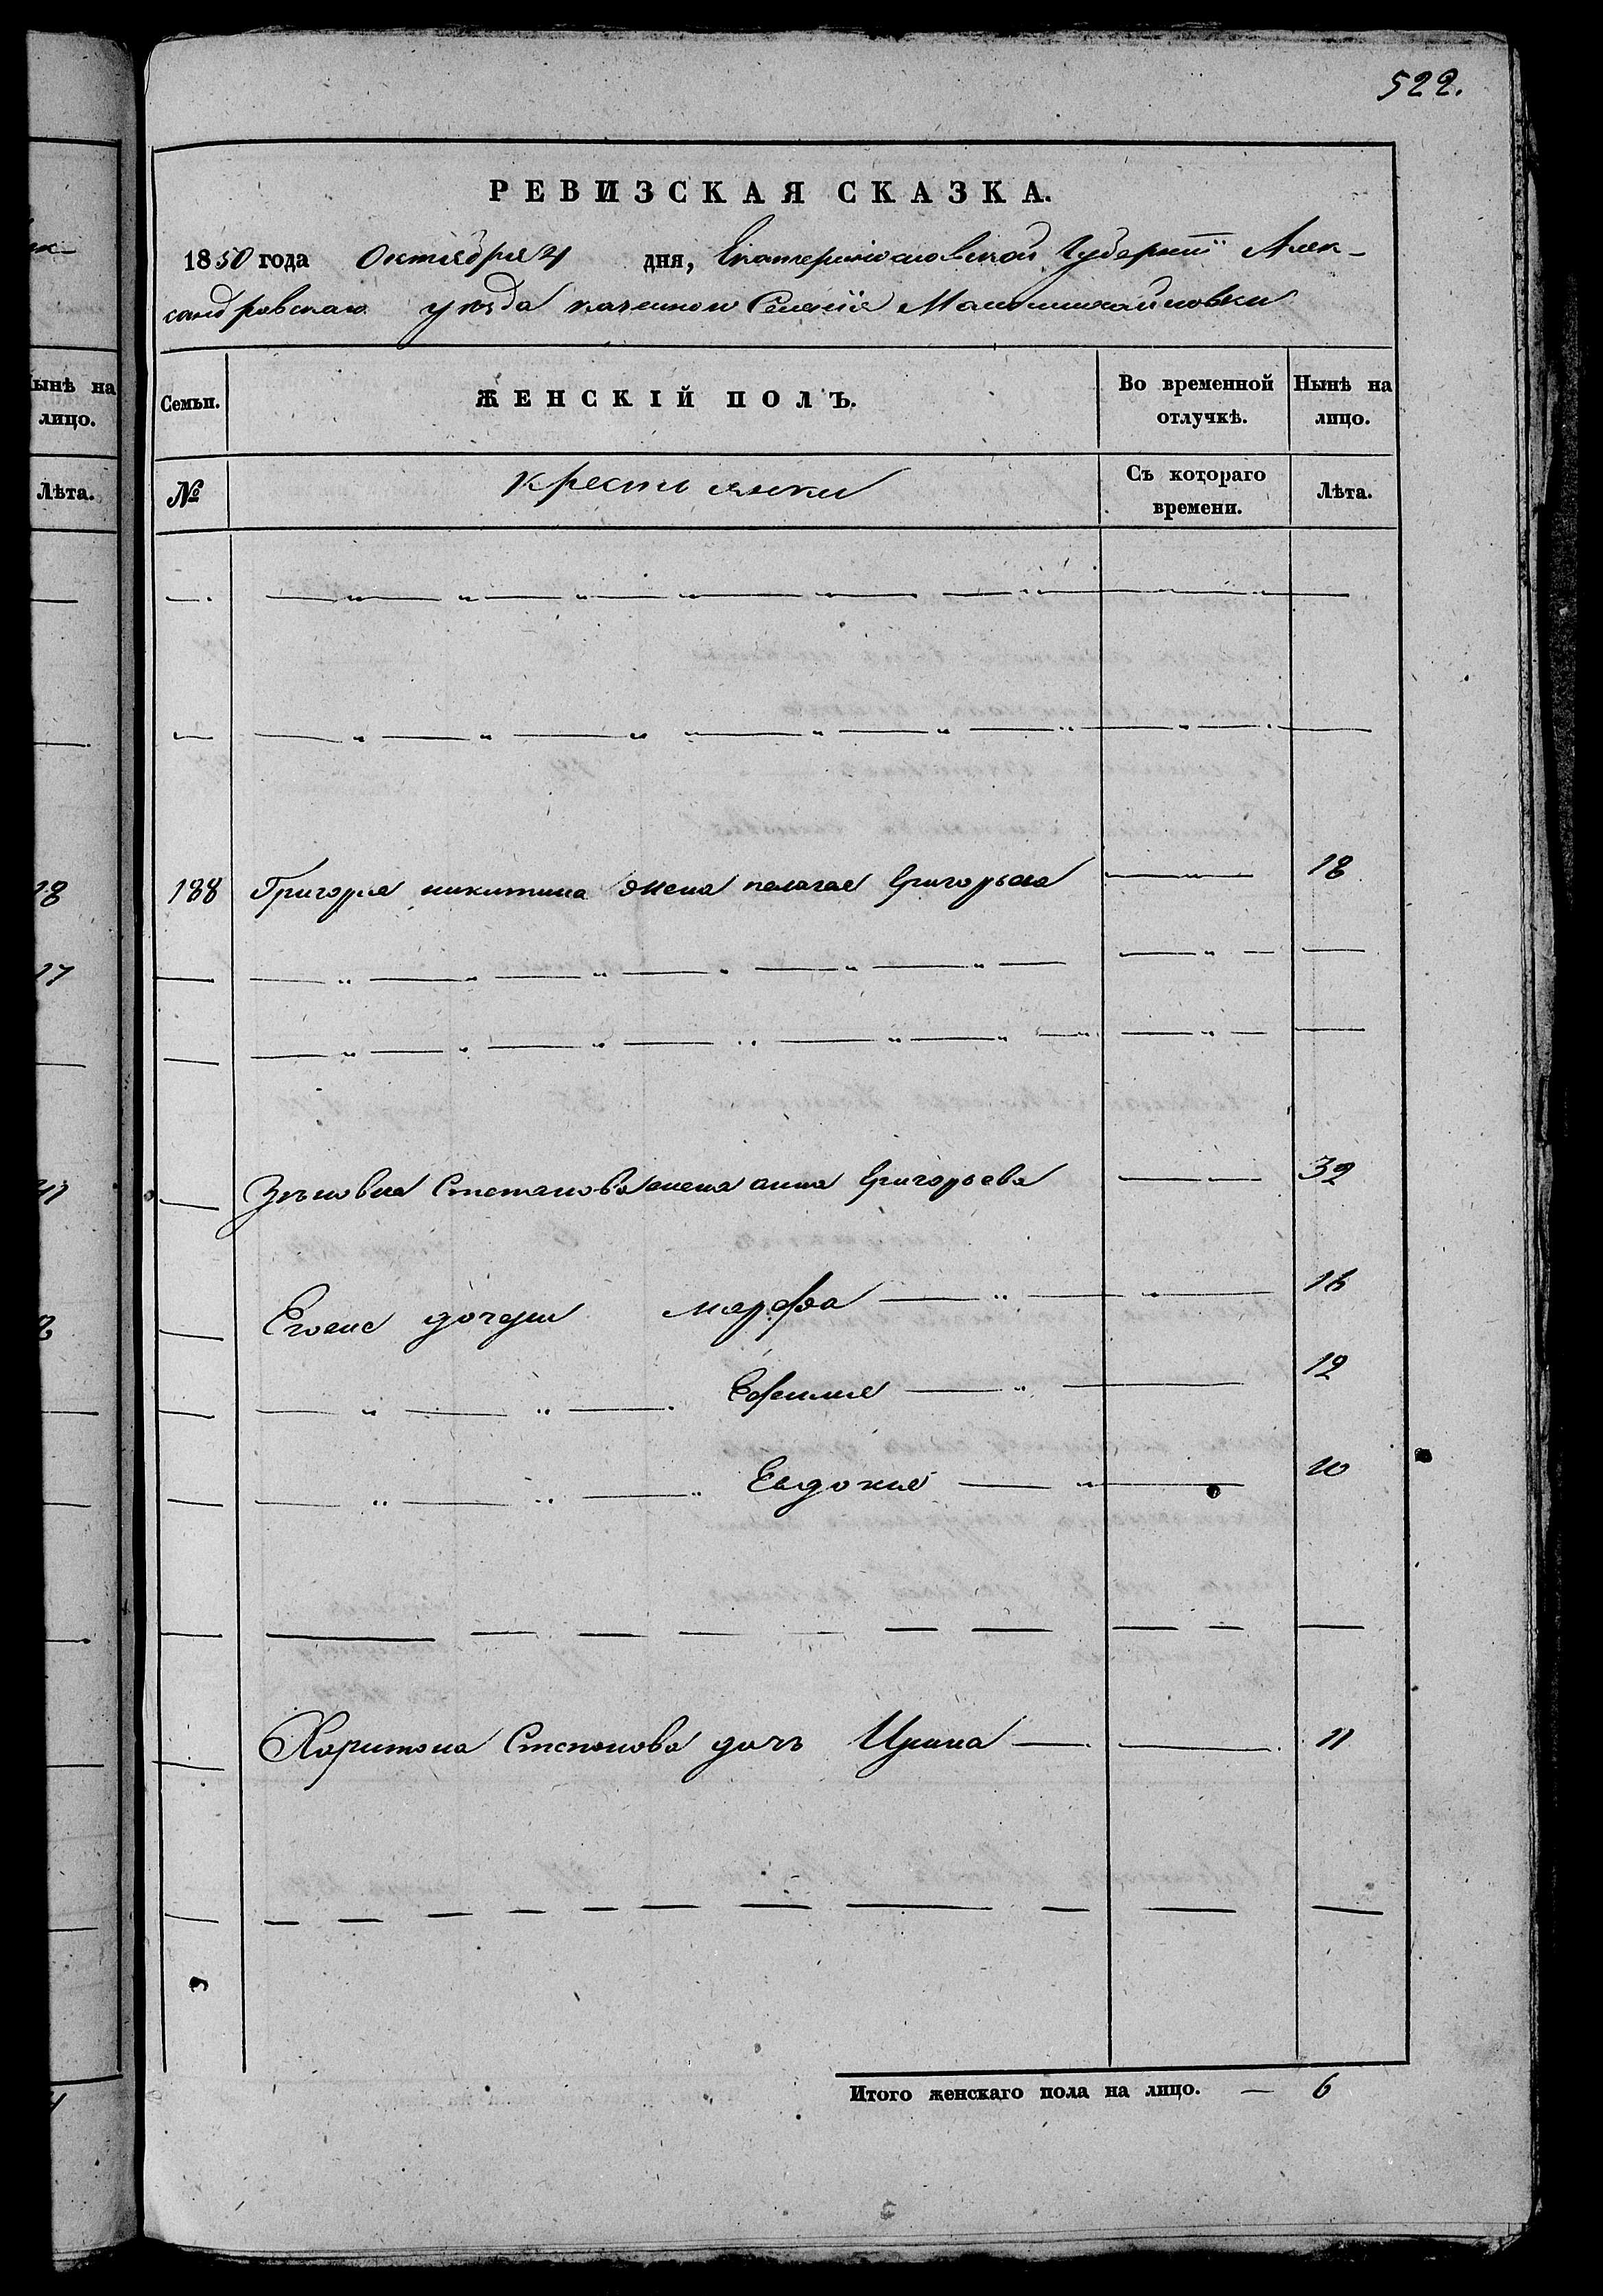 522.
РЕВИЗСКАЯ СКАЗКА.
1850 года Октября 21 дня, Екатеринославской Губернiи Алек-
сандровскаго уѣзда казенного Селенiя Маломихайловки
Семьи. ЖЕНСКIЙ ПОЛЪ. Во временной отлучкѣ. Нынѣ на лицо.
№ крестьянки Съ котораго времени. Лѣта.
188 Григорья никитина жена пелагея Григорьева — 18
— Зѣновея Степанова жена анна Григорьева — 32
— Егоже дочери марфа — 16
— Ефимия — 12
— Евдокия — 10
— Харитона Степанова дочь Ирина — 11
Итого женскаго пола на лицо. — 6
ынѣ на
лицо.
Лѣта.
18
17